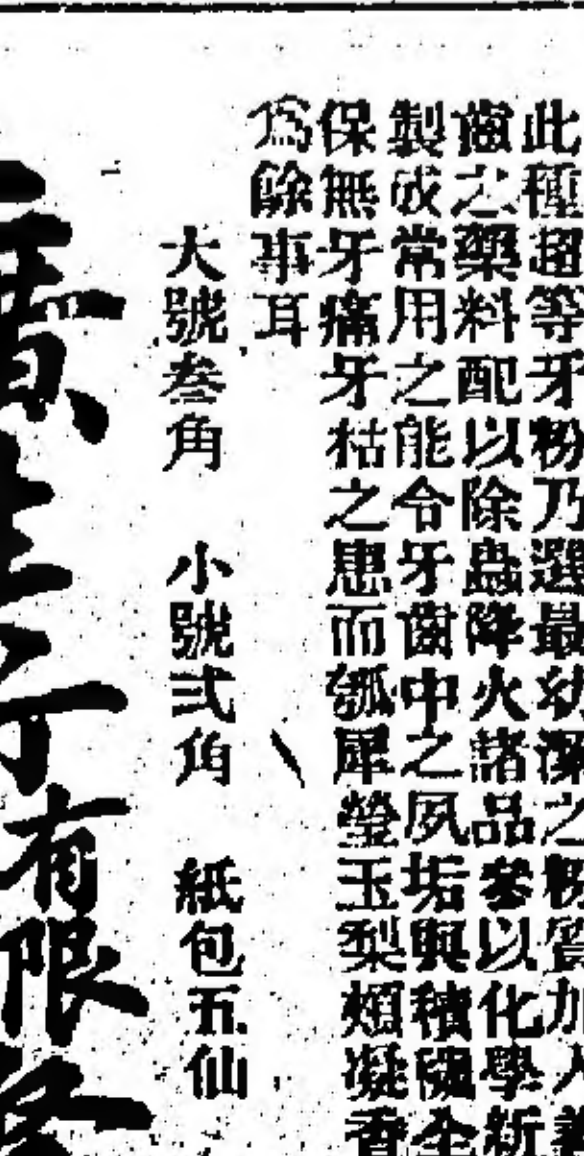 此種超等牙粉乃選最幼潔之粉質加入善
齒之藥料配以除蟲降火諸品參以化學新
製成常用之能令牙齒中之夙垢與積穢全
保無牙痛牙枯之患而瓠犀瑩玉梨頰凝香
為餘事耳
大號叁角　小號弍角　紙包五仙
廣生行有限